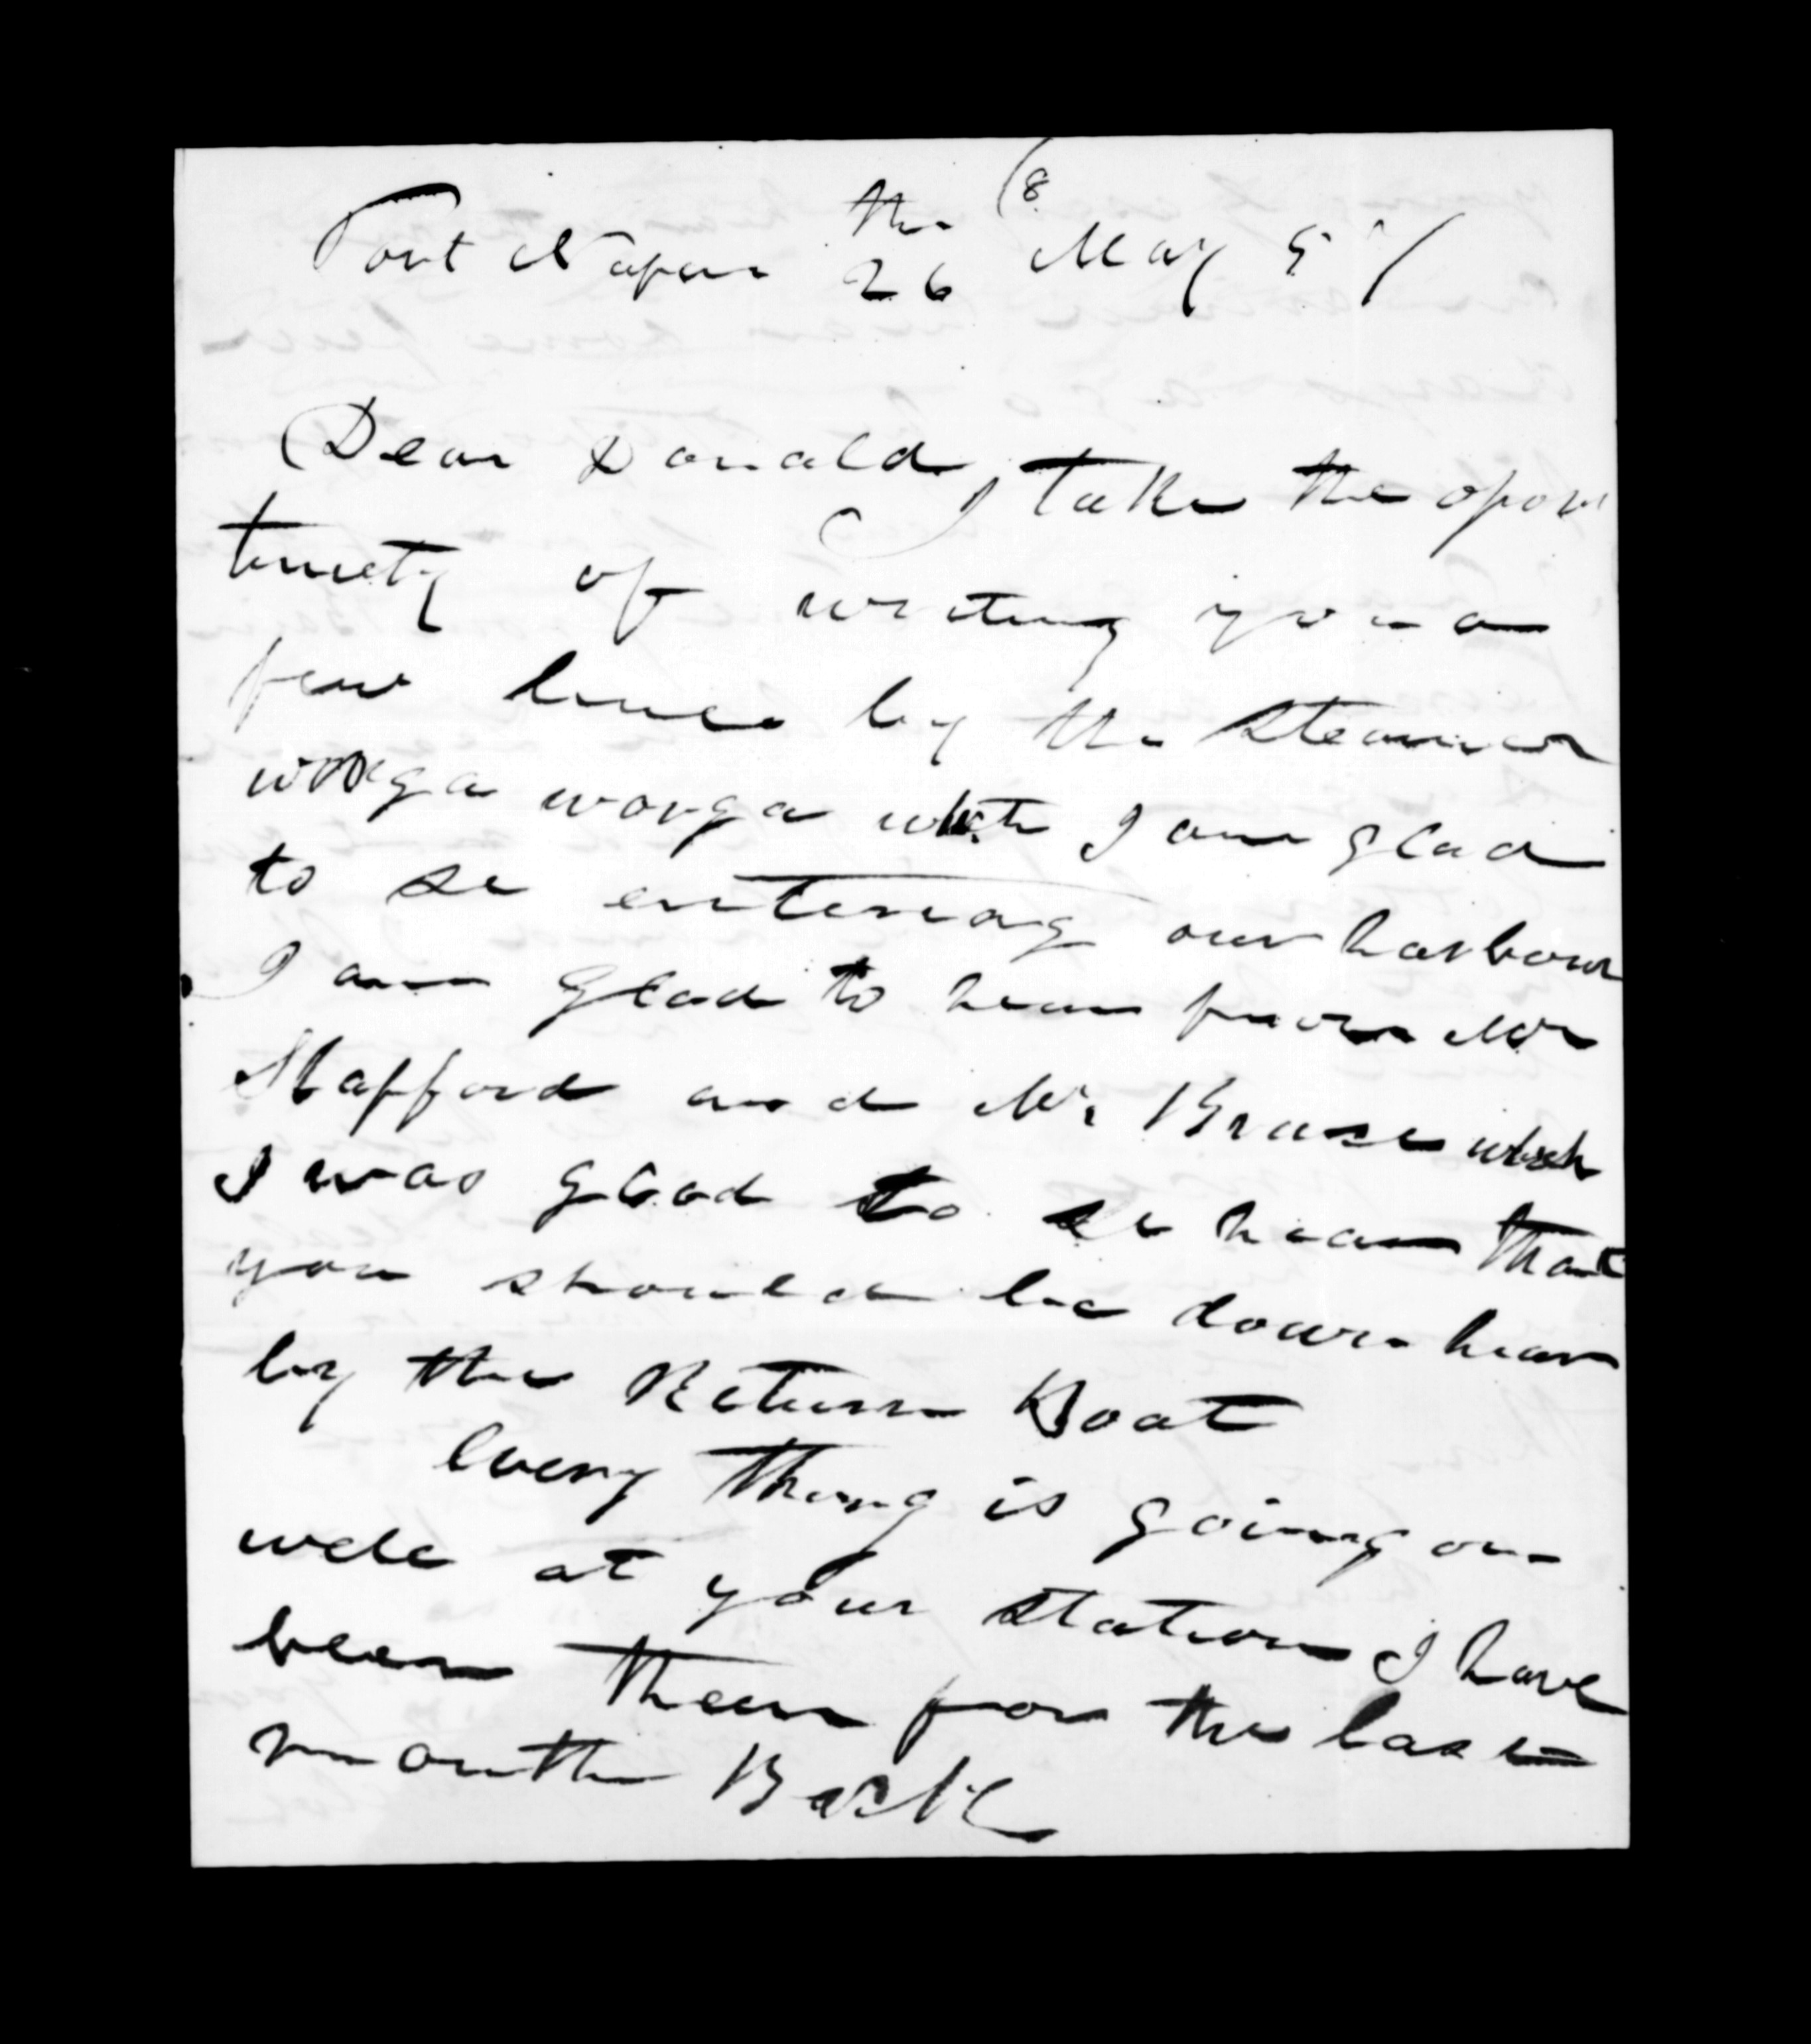 Port Napier the 26 May 57/
Dear Donald, I take the opor
tunety of writing you a
few lines by the steamer
wonga wonga which I am glad
to se entering our harbour
I am glad to hear from Mr
Stafford and Mr Bruse which
I was glad to se hear that
you should be down hear
by the Return Boat
Every thing is going on
well at your station I have
been thear for the last
month Back